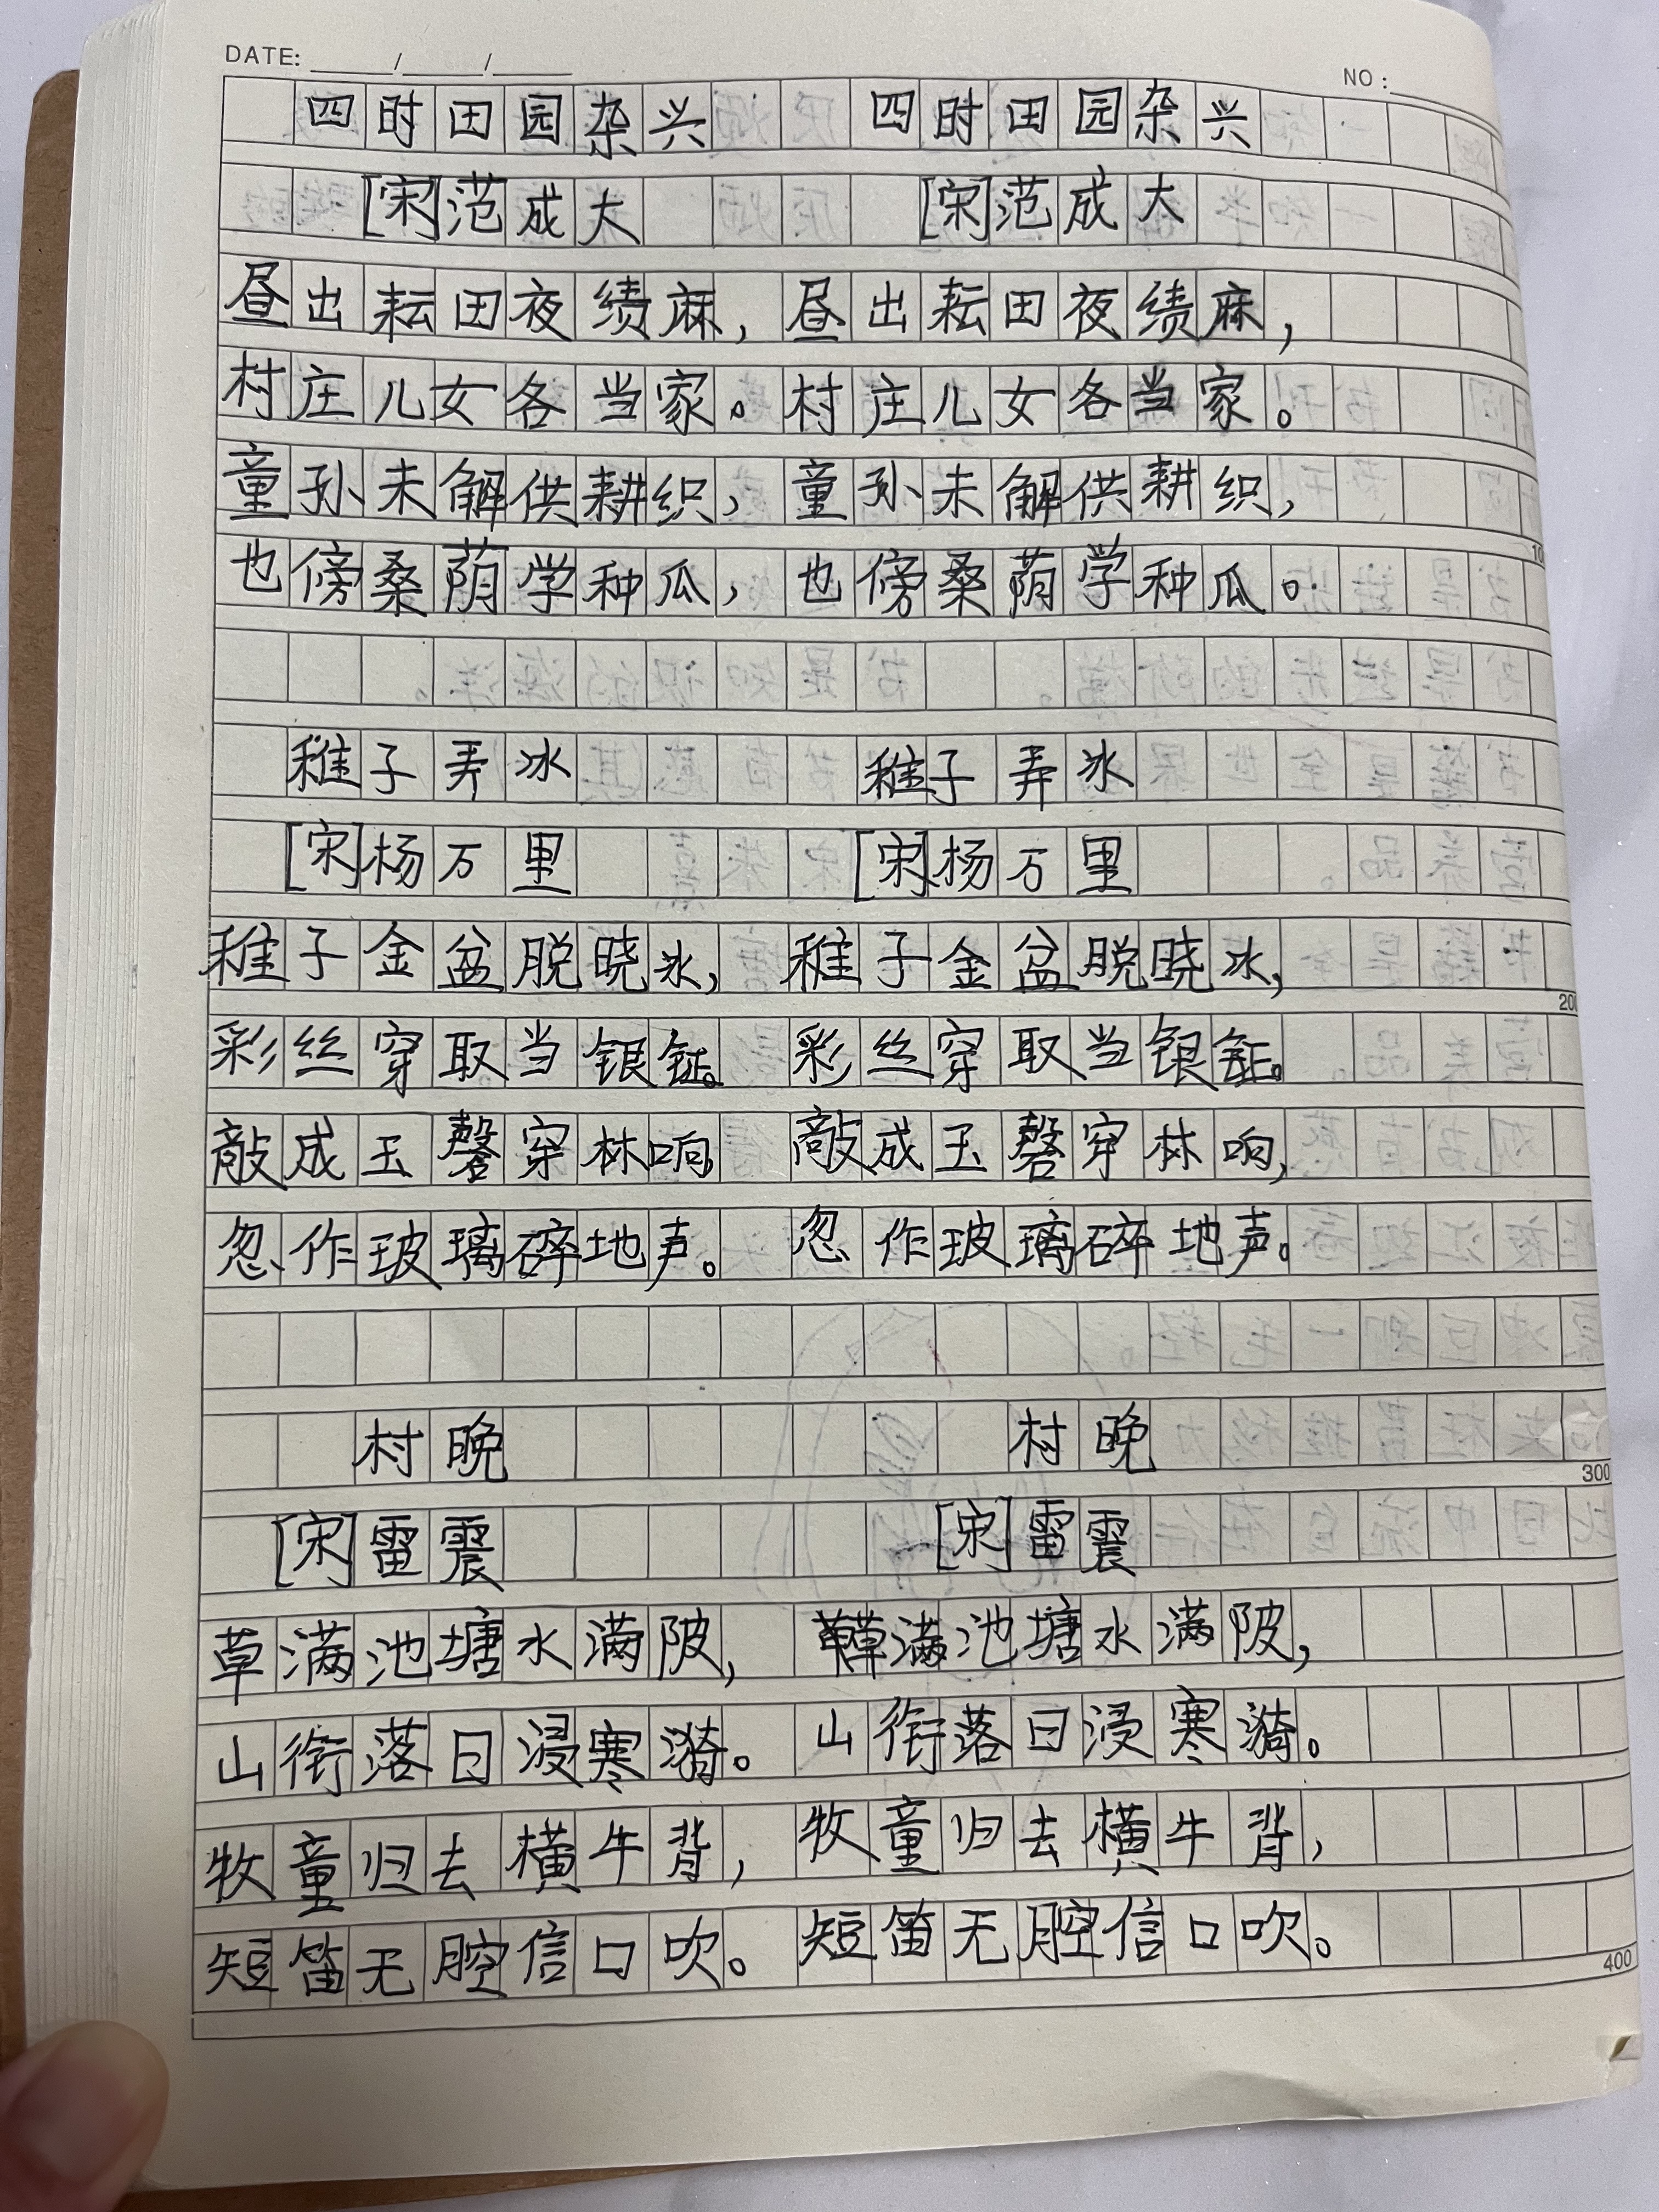 DATE: ____/____/____ NO:
四时田园杂兴 四时田园杂兴
[宋]范成大 [宋]范成大
昼出耘田夜绩麻，昼出耘田夜绩麻，
村庄儿女各当家。村庄儿女各当家。
童孙未解供耕织，童孙未解供耕织，
也傍桑荫学种瓜，也傍桑荫学种瓜。
稚子弄冰 稚子弄冰
[宋]杨万里 [宋]杨万里
稚子金盆脱晓冰，稚子金盆脱晓冰，
彩丝穿取当银钲。彩丝穿取当银钲。
敲成玉磬穿林响，敲成玉磬穿林响，
忽作玻璃碎地声。忽作玻璃碎地声。
村晚 村晚
[宋]雷震 [宋]雷震
草满池塘水满陂，草满池塘水满陂，
山衔落日浸寒漪。山衔落日浸寒漪。
牧童归去横牛背，牧童归去横牛背，
短笛无腔信口吹。短笛无腔信口吹。
200
300
400